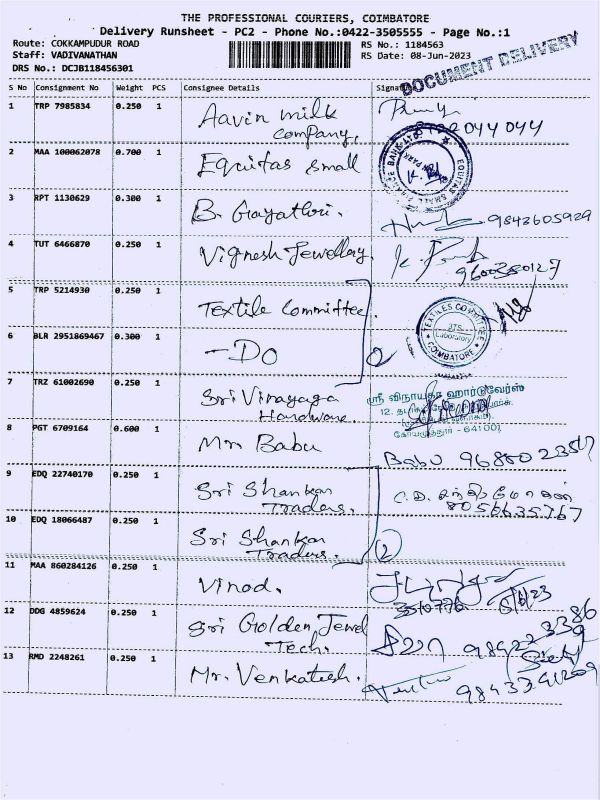 THE PROFESSIONAL COURIERS, COIMBATORE
Delivery Runsheet - PC2 - Phone No.:0422-3505555 - Page No.:1
Route: COKKAMPUDUR ROAD
RS No.: 1184563
Staff: VADIVANATHAN
RS Date: 08-Jun-2023
DRS No.: DCJB118456301
DOCUMENT DELIVERY
S No Consignment No Weight PCS Consignee Details
1 TRP 7985834 0.250 1 Aavin milk
company,
044 044
2 MAA 100062078 0.700 1 Equitas small
EQUITAS SMALL FINANCE BANK LTD.
3 RPT 1130629 0.300 1 B. Gayathri. 9843605929
4 TUT 6466870 0.250 1 Vignesh Jewellary.
5 TRP 5214930 0.250 1 Textile Committee.
TEXTILES COMMITTEE
Laboratory
COIMBATORE
6 BLR 2951869467 0.300 1 - Do
7 TRZ 61002690 0.250 1 Sri Vinayaga
Hardware.
ஸ்ரீ விநாயகா ஹார்டுவேர்ஸ்
கோயமுத்தூர் - 641001
8 PGT 6709164 0.600 1 Mr. Babu
Babu
9 EDQ 22740170 0.250 1 Sri Shankar
Traders.
8056635767
10 EDQ 18066487 0.250 1 Sri Shankar
Traders.
2
11 MAA 860284126 0.250 1 Vinod.
12 DDG 4859624 0.250 1 Sri Golden Jewel
Tech.
13 RMD 2248261 0.250 1 Mr. Venkatesh.